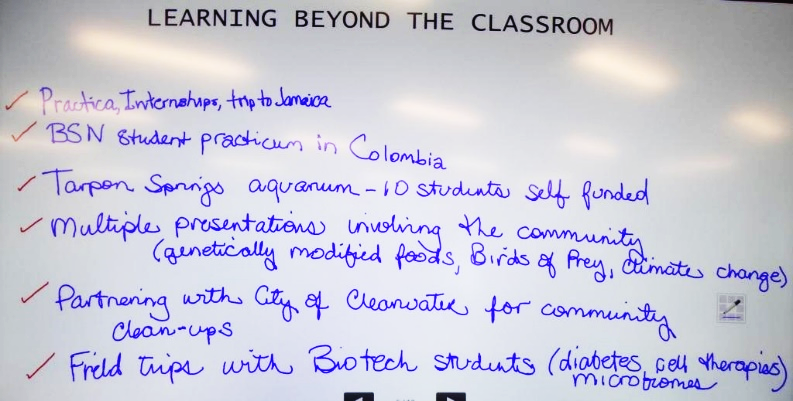 LEARNING BEYOND THE CLASSROOM
Practica, Internships, trip to Jamaica
BSN student practicum in Colombia
Tarpon Springs aquarium - 10 students self funded
Multiple presentations involving the community
(genetically modified foods, Birds of Prey, climate change)
Partnering with City of Clearwater for community
clean-ups
Field trips with Biotech students (diabetes, cell therapies)
microbiomes